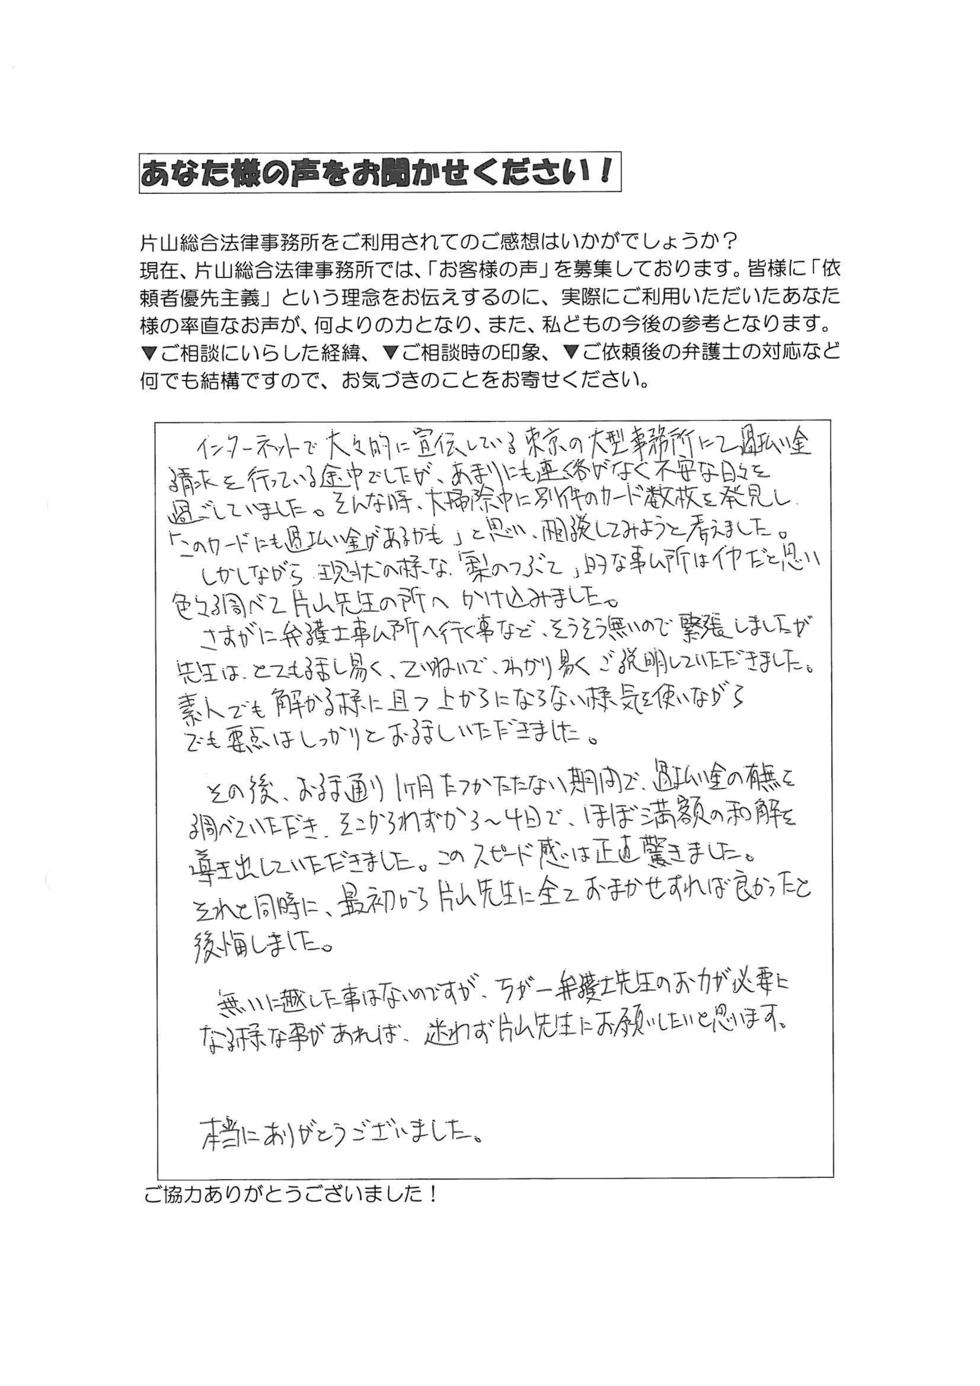 あなた様の声をお聞かせください！
片山総合法律事務所をご利用されてのご感想はいかがでしょうか？
現在、片山総合法律事務所では、「お客様の声」を募集しております。皆様に「依
頼者優先主義」という理念をお伝えするのに、実際にご利用いただいたあなた
様の率直なお声が、何よりの力となり、また、私どもの今後の参考となります。
▼ご相談にいらした経緯、▼ご相談時の印象、▼ご依頼後の弁護士の対応など
何でも結構ですので、お気づきのことをお寄せください。
インターネットで大々的に宣伝している東京の大型事務所にて過払い金
請求を行っている途中でしたが、あまりにも連絡がなく不安な日々を
過ごしていました。そんな時、大掃除中に別件のカード数枚を発見し
「このカードにも過払い金があるかも」と思い、相談してみようと考えました。
しかしながら現状の様な「梨のつぶて」的な事ム所はイヤだと思い
色々調べて片山先生の所へかけ込みました。
さすがに弁護士事ム所へ行く事など、そうそう無いので緊張しましたが
先生は、とても話し易く、ていねいで、わかり易くご説明していただきました。
素人でも解かる様に且つ上からにならない様気を使いながら
でも要点はしっかりとお話しいただきました。
その後、お話通り1ヶ月たつかたたない期間で、過払い金の有無を
調べていただき、そこからわずか3～4日で、ほぼ満額の和解を
導き出していただきました。このスピード感は正直驚きました。
それと同時に、最初から片山先生に全ておまかせすれば良かったと
後悔しました。
無いに越した事はないのですが、万が一弁護士先生のお力が必要に
なる様な事があれば、迷わず片山先生にお願いしたいと思います。
本当にありがとうございました。
ご協力ありがとうございました！